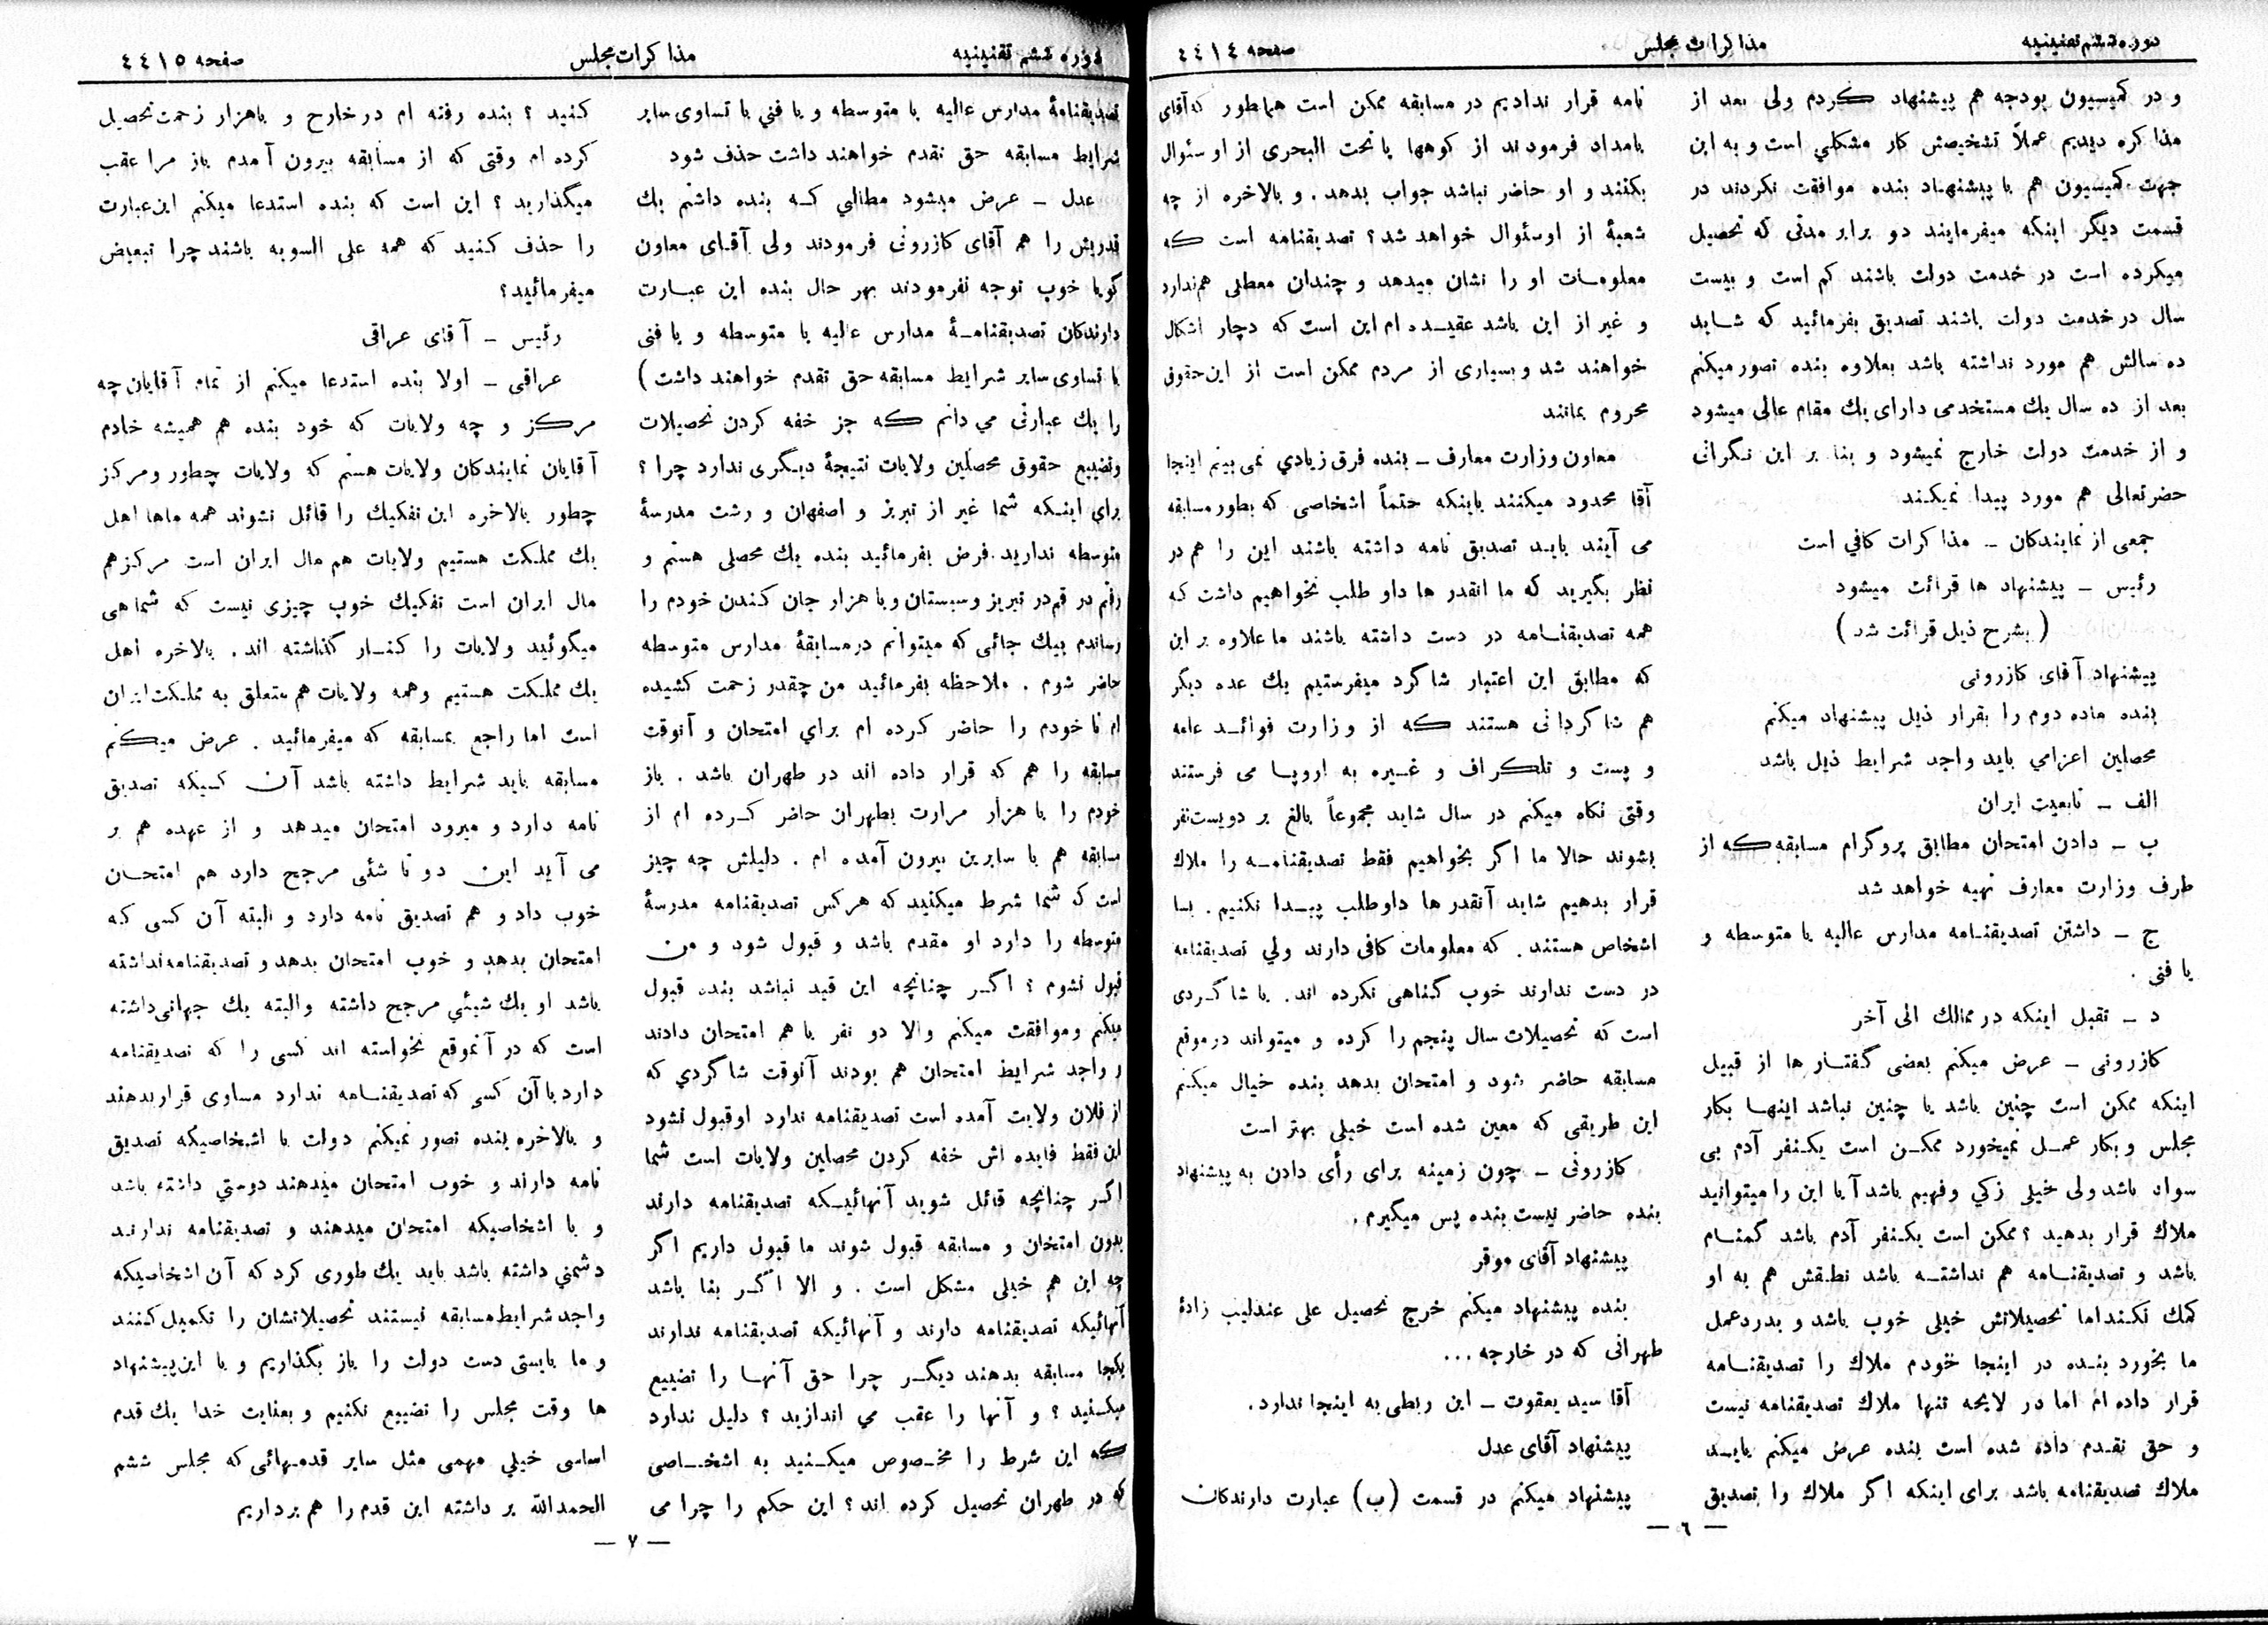 دوره ششم تقنینیه
مذاکرات مجلس
صفحه ٤٤١٤
و در کمیسیون بودجه هم پیشنهاد کردم ولی بعد از
مذاکره دیدیم عملاً تشخیصش کار مشکلی است و به این
جهت کمیسیون هم با پیشنهاد بنده موافقت نکردند در
قسمت دیگر اینکه میفرمایند دو برابر مدتی که تحصیل
میکرده است در خدمت دولت باشند کم است و بیست
سال در خدمت دولت باشند تصدیق بفرمائید که شاید
ده سالش هم مورد نداشته باشد بعلاوه بنده تصور میکنم
بعد از ده سال یك مستخدمی دارای یك مقام عالی میشود
و از خدمت دولت خارج نمیشود و بنا بر این نگرانی
حضرتعالی هم مورد پیدا نمیکند
جمعی از نمایندکان ـ مذاکرات کافی است
رئیس ـ پیشنهاد ها قرائت میشود
( بشرح ذیل قرائت شد )
پیشنهاد آقای کازرونی
بنده ماده دوم را بقرار ذیل پیشنهاد میکنم
محصلین اعزامی باید واجد شرایط ذیل باشد
الف ـ تابعیت ایران
ب ـ دادن امتحان مطابق پروگرام مسابقه که از
طرف وزارت معارف تهیه خواهد شد
ج ـ داشتن تصدیقنامه مدارس عالیه یا متوسطه و
یا فنی .
د ـ تقبل اینکه در ممالك الی آخر
کازرونی ـ عرض میکنم بعضی گفتار ها از قبیل
اینکه ممکن است چنین باشد یا چنین نباشد اینها بکار
مجلس و بکار عمل نمیخورد ممکن است یکنفر آدم بی
سواد باشد ولی خیلی زکی وفهیم باشد آیا این را میتوانید
ملاك قرار بدهید ؟ ممکن است یکنفر آدم باشد گمنام
باشد و تصدیقنامه هم نداشته باشد نطقش هم به او
کمك نکند اما تحصیلاتش خیلی خوب باشد و بدرد عمل
ما بخورد بنده در اینجا خودم ملاك را تصدیقنامه
قرار داده ام اما در لایحه تنها ملاك تصدیقنامه نیست
و حق تقدم داده شده است بنده عرض میکنم باید
ملاك تصدیقنامه باشد برای اینکه اکر ملاك را تصدیق
نامه قرار ندادیم در مسابقه ممکن است همانطور که آقای
بامداد فرمودند از کوهها یا تحت البحری از او سئوال
بکنند و او حاضر نباشد جواب بدهد . و بالاخره از چه
شعبۀ از اوسئوال خواهد شد ؟ تصدیقنامه است که
معلومات او را نشان میدهد و چندان معطلی هم ندارد
و غیر از این باشد عقیده ام این است که دچار اشکال
خواهند شد و بسیاری از مردم ممکن است از این حقوق
محروم بمانند
معاون وزارت معارف ـ بنده فرق زیادی نمی بینم اینجا
آقا محدود میکنند باینکه حتماً اشخاصی که بطور مسابقه
می آیند باید تصدیق نامه داشته باشند این را هم در
نظر بگیرید که ما انقدر ها داو طلب نخواهیم داشت که
همه تصدیقنامه در دست داشته باشند ما علاوه بر این
که مطابق این اعتبار شاکرد میفرستیم یك عده دیگر
هم شاکردانی هستند که از وزارت فوائد عامه
و پست و تلکراف و غیره به اروپا می فرستند
وقتی نکاه میکنم در سال شاید مجموعاً بالغ بر دویست نفر
بشوند حالا ما اکر بخواهیم فقط تصدیقنامه را ملاك
قرار بدهیم شاید آنقدر ها داوطلب پیدا نکنیم . بسا
اشخاص هستند . که معلومات کافی دارند ولی تصدیقنامه
در دست ندارند خوب کناهی نکرده اند . یا شاگردی
است که تحصیلات سال پنجم را کرده و میتواند در موقع
مسابقه حاضر شود و امتحان بدهد بنده خیال میکنم
این طریقی که معین شده است خیلی بهتر است
کازرونی ـ چون زمینه برای رأی دادن به پیشنهاد
بنده حاضر نیست بنده پس میگیرم .
پیشنهاد آقای موقر
بنده پیشنهاد میکنم خرج تحصیل علی عندلیب زادۀ
طهرانی که در خارجه ...
آقا سید یعقوت ـ این ربطی به اینجا ندارد .
پیشنهاد آقای عدل
پیشنهاد میکنم در قسمت (ب) عبارت دارندکان
— ٦ —
دوره ششم تقنینیه
مذاکرات مجلس
صفحه ٤٤١٥
تصدیقنامۀ مدارس عالیه یا متوسطه و یا فنی با تساوی سایر
شرایط مسابقه حق تقدم خواهند داشت حذف شود
عدل ـ عرض میشود مطالبی که بنده داشتم یك
قدریش را هم آقای کازرونی فرمودند ولی آقای معاون
گویا خوب توجه نفرمودند بهر حال بنده این عبارت
دارندکان تصدیقنامۀ مدارس عالیه یا متوسطه و یا فنی
با تساوی سایر شرایط مسابقه حق تقدم خواهند داشت )
را یك عبارتی می دانم که جز خفه کردن تحصیلات
وتضییع حقوق محصلین ولایات نتیجۀ دیگری ندارد چرا ؟
برای اینکه شما غیر از تبریز و اصفهان و رشت مدرسۀ
متوسطه ندارید . فرض بفرمائید بنده یك محصلی هستم و
رفتم در قم در تبریز و سیستان و با هزار جان کندن خودم را
رساندم بیك جائی که میتوانم در مسابقۀ مدارس متوسطه
حاضر شوم . ملاحظه بفرمائید من چقدر زحمت کشیده
ام تا خودم را حاضر کرده ام برای امتحان و آنوقت
مسابقه را هم که قرار داده اند در طهران باشد . باز
خودم را با هزار مرارت بطهران حاضر کرده ام از
مسابقه هم با سایرین بیرون آمده ام . دلیلش چه چیز
است که شما شرط میکنید که هرکس تصدیقنامه مدرسۀ
متوسطه را دارد او مقدم باشد و قبول شود و من
قبول نشوم ؟ اکر چنانچه این قید نباشد بنده قبول
میکنم وموافقت میکنم والا دو نفر با هم امتحان دادند
و واجد شرایط امتحان هم بودند آنوقت شاکردی که
از فلان ولایت آمده است تصدیقنامه ندارد اوقبول نشود
این فقط فایده اش خفه کردن محصلین ولایات است شما
اکر چنانچه قائل شوید آنهائیکه تصدیقنامه دارند
بدون امتحان و مسابقه قبول شوند ما قبول داریم اکر
چه این هم خیلی مشکل است . و الا اگر بنا باشد
آنهائیکه تصدیقنامه دارند و آنهائیکه تصدیقنامه ندارند
یکجا مسابقه بدهند دیگر چرا حق آنها را تضییع
میکنید ؟ و آنها را عقب می اندازید ؟ دلیل ندارد
که این شرط را مخصوص میکنید به اشخاصی
که در طهران تحصیل کرده اند ؟ این حکم را چرا می
کنید ؟ بنده رفته ام در خارج و باهزار زحمت تحصیل
کرده ام وقتی که از مسابقه بیرون آمدم باز مرا عقب
میگذارید ؟ این است که بنده استدعا میکنم این عبارت
را حذف کنید که همه علی السویه باشند چرا تبعیض
میفرمائید ؟
رئیس ـ آقای عراقی
عراقی ـ اولا بنده استدعا میکنم از تمام آقایان چه
مرکز و چه ولایات که خود بنده هم همیشه خادم
آقایان نمایندکان ولایات هستم که ولایات چطور ومرکز
چطور بالاخره این تفکیك را قائل نشوند همه ماها اهل
یك مملکت هستیم ولایات هم مال ایران است مرکز هم
مال ایران است تفکیك خوب چیزی نیست که شما هی
میگوئید ولایات را کنار گذاشته اند . بالاخره اهل
یك مملکت هستیم وهمه ولایات هم متعلق به مملکت ایران
است اما راجع بمسابقه که میفرمائید . عرض میکنم
مسابقه باید شرایط داشته باشد آن کسیکه تصدیق
نامه دارد و میرود امتحان میدهد و از عهده هم بر
می آید این دو تا شئی مرجح دارد هم امتحان
خوب داد و هم تصدیق نامه دارد و البته آن کسی که
امتحان بدهد و خوب امتحان بدهد و تصدیقنامه نداشته
باشد او یك شیئی مرجح داشته والبته یك جهاتی داشته
است که در آنموقع نخواسته اند کسی را که تصدیقنامه
دارد با آن کسی که تصدیقنامه ندارد مساوی قرار بدهند
و بالاخره بنده تصور نمیکنم دولت با اشخاصیکه تصدیق
نامه دارند و خوب امتحان میدهند دوستی داشته باشد
و با اشخاصیکه امتحان میدهند و تصدیقنامه ندارند
دشمنی داشته باشد باید یك طوری کرد که آن اشخاصیکه
واجد شرایط مسابقه نیستند تحصیلاتشان را تکمیل کنند
و ما بایستی دست دولت را باز بگذاریم و با این پیشنهاد
ها وقت مجلس را تضییع نکنیم و بعنایت خدا یك قدم
اساسی خیلی مهمی مثل سایر قدمهائی که مجلس ششم
الحمدالله بر داشته این قدم را هم برداریم
— ٧ —